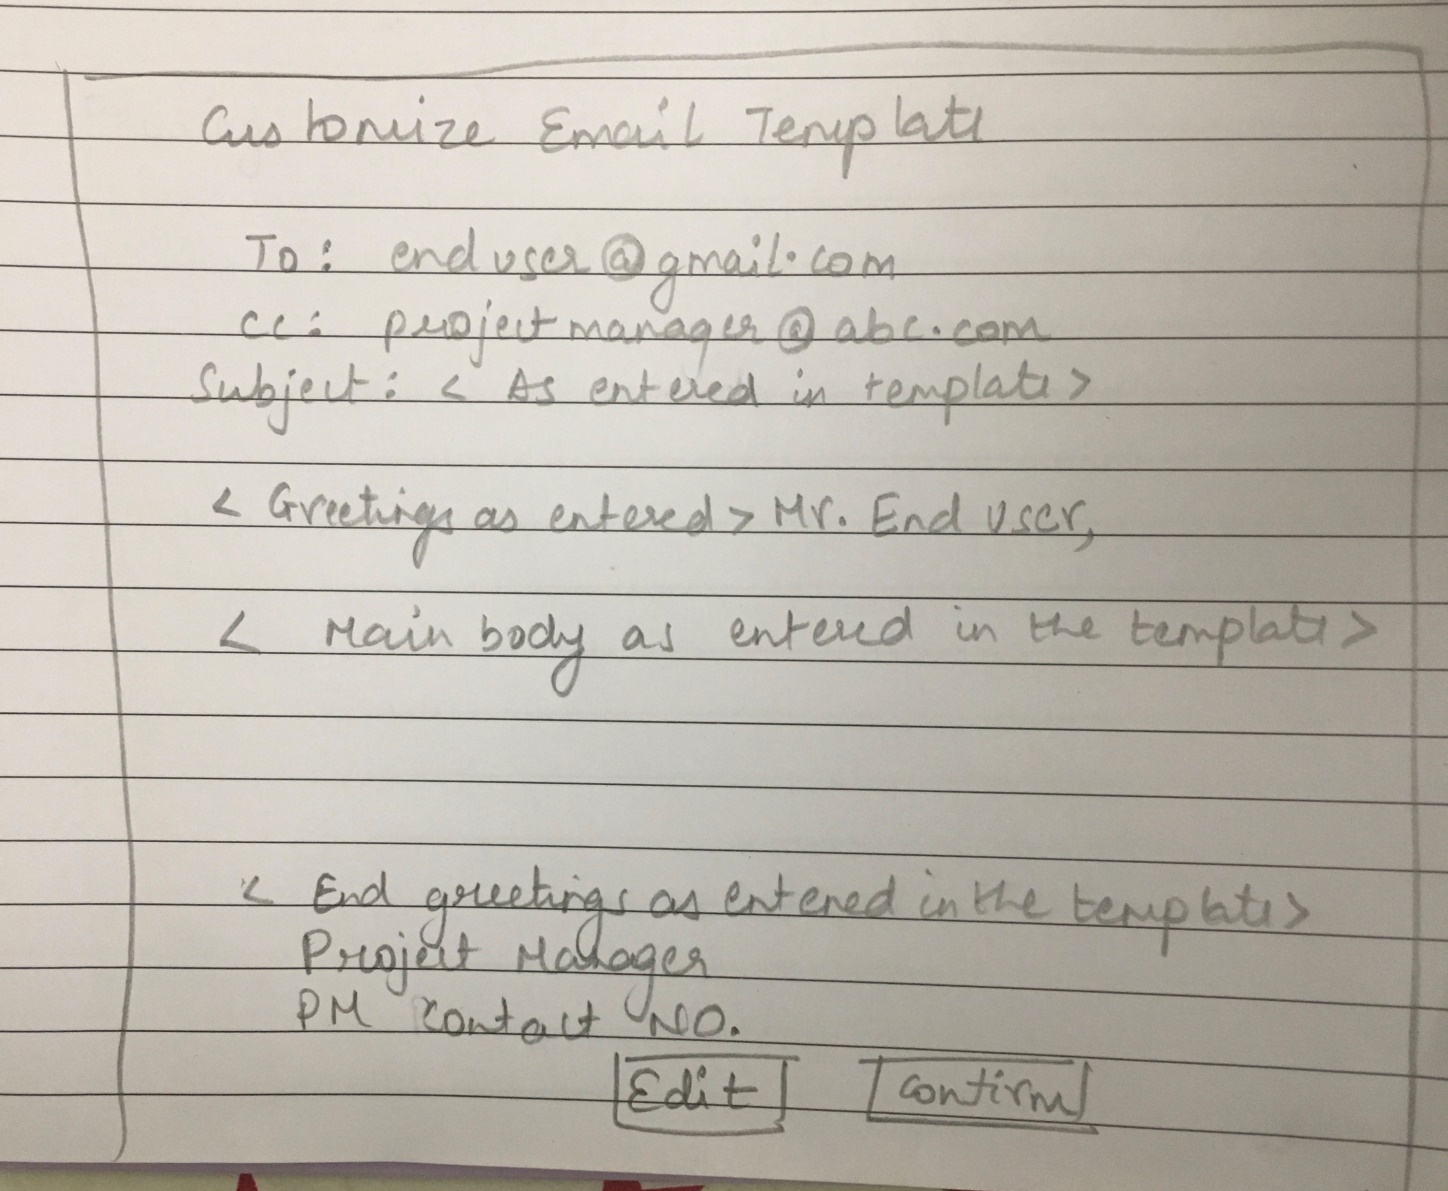 Customize Email Template
To: enduser@gmail.com
cc: projectmanager@abc.com
Subject: < As entered in template >
< Greetings as entered > Mr. End User,
< Main body as entered in the template >
< End greetings as entered in the template >
Project Manager
PM Contact NO.
Edit Confirm